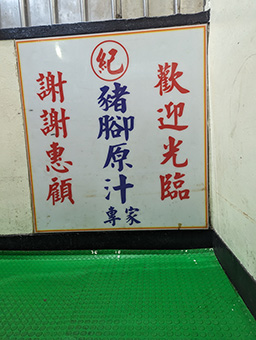 歡迎光臨
紀
豬腳原汁
專家
謝謝惠顧